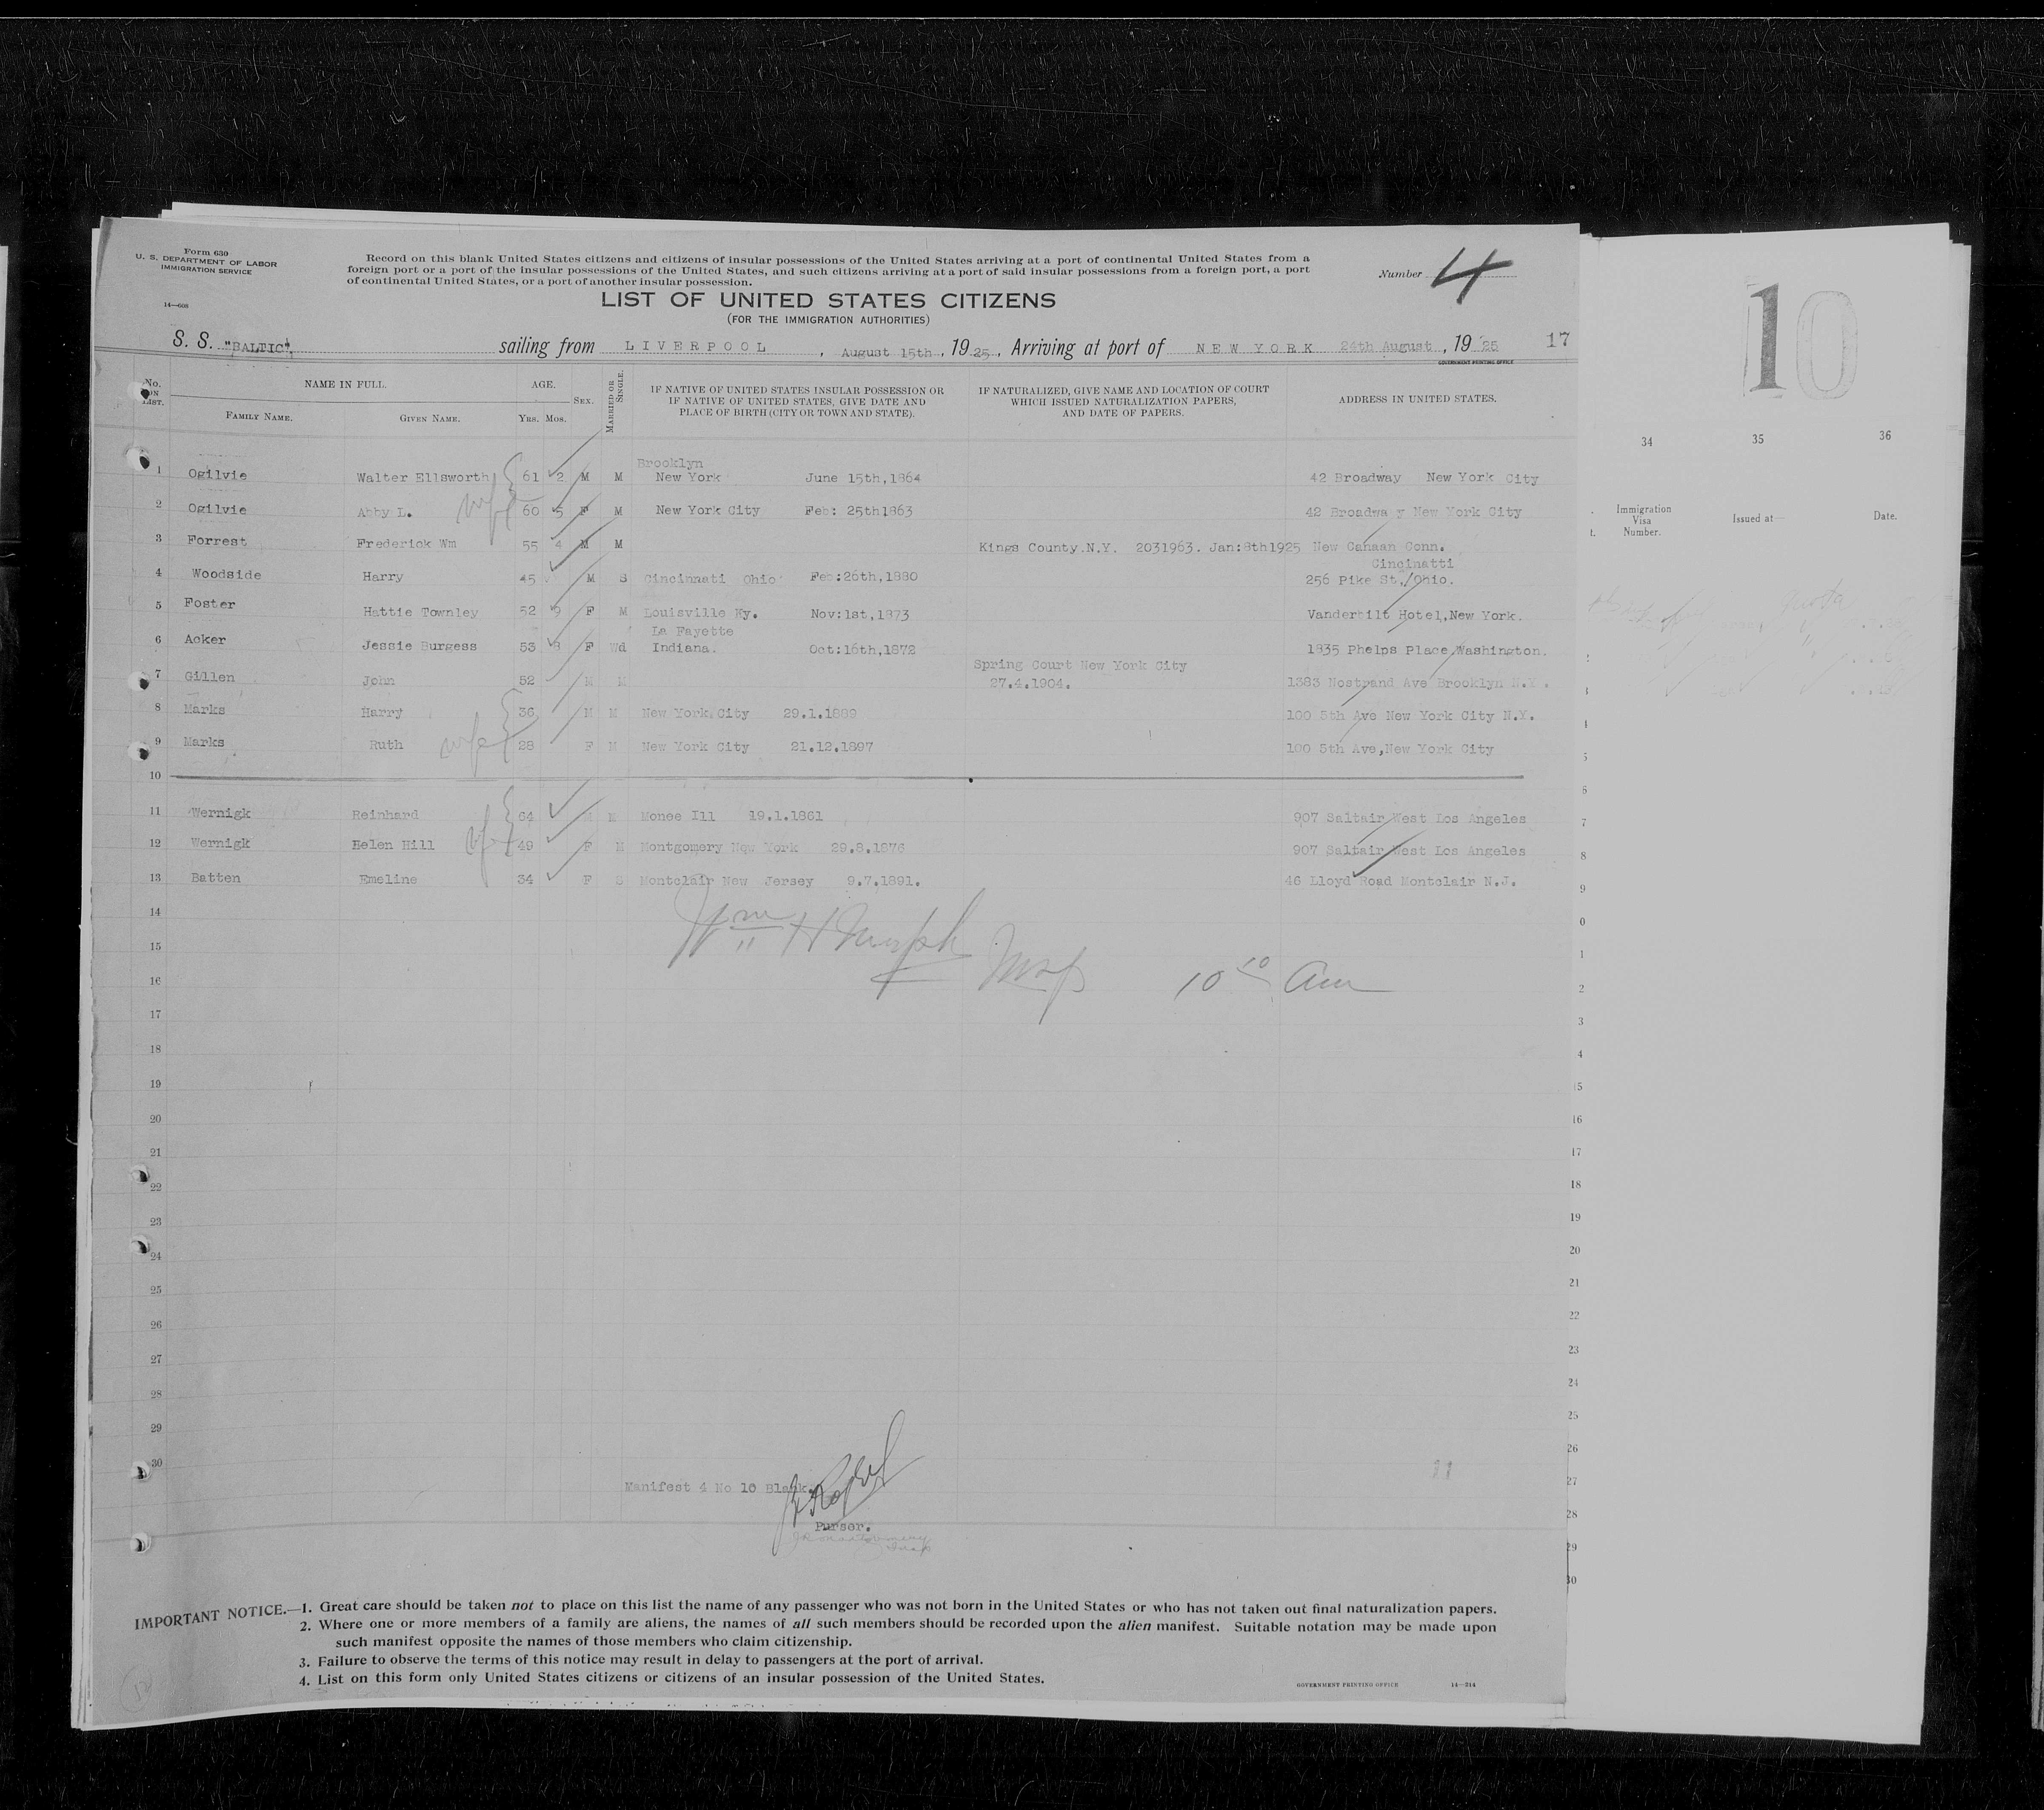 Form 630
U. S. DEPARTMENT OF LABOR
IMMIGRATION SERVICE
14—608
Record on this blank United States citizens and citizens of insular possessions of the United States arriving at a port of continental United States from a
foreign port or a port of the insular possessions of the United States, and such citizens arriving at a port of said insular possessions from a foreign port, a port
of continental United States, or a port of another insular possession.
Number 4
LIST OF UNITED STATES CITIZENS
(FOR THE IMMIGRATION AUTHORITIES)
S. S. "BALTIC", sailing from LIVERPOOL, August 15th, 1925, Arriving at port of NEW YORK 24th August, 1925 17
GOVERNMENT PRINTING OFFICE
No. ON LIST. NAME IN FULL. AGE. SEX. MARRIED OR SINGLE. IF NATIVE OF UNITED STATES INSULAR POSSESSION OR IF NATIVE OF UNITED STATES, GIVE DATE AND PLACE OF BIRTH (CITY OR TOWN AND STATE). IF NATURALIZED, GIVE NAME AND LOCATION OF COURT WHICH ISSUED NATURALIZATION PAPERS, AND DATE OF PAPERS. ADDRESS IN UNITED STATES.
FAMILY NAME. GIVEN NAME. YRS. MOS.
Brooklyn
1 Ogilvie Walter Ellsworth 61 2 M M New York June 15th,1864 42 Broadway New York City
wife
2 Ogilvie Abby L. 60 5 F M New York City Feb: 25th1863 42 Broadwa y New York City
3 Forrest Frederick Wm 55 4 M M Kings County.N.Y. 2031963. Jan:8th1925 New Canaan Conn.
Cincinatti
4 Woodside Harry 45 M S Cincinnati Ohio Feb:26th,1880 256 Pike St,/Ohio.
5 Foster Hattie Townley 52 9 F M Louisville Ky. Nov:1st,1873 Vanderbilt Hotel,New York.
La Fayette
6 Acker Jessie Burgess 53 8 F Wd Indiana. Oct:16th,1872 1835 Phelps Place,Washington.
Spring Court New York City
7 Gillen John 52 M M 27.4.1904. 1383 Nostrand Ave Brooklyn N.Y.
8 Marks Harry 36 M M New York City 29.1.1889 100 5th Ave New York City N.Y.
wife
9 Marks Ruth 28 F M New York City 21.12.1897 100 5th Ave,New York City
10
11 Wernigk Reinhard 64 M M Monee Ill 19.1.1861 907 Saltair West Los Angeles
wf
12 Wernigk Helen Hill 49 F M Montgomery New York 29.8.1876 907 Saltair West Los Angeles
13 Batten Emeline 34 F S Montclair New Jersey 9.7.1891. 46 Lloyd Road Montclair N.J.
14
Wm H Murph
15
Insp 10 10 Am
16
17
18
19
20
21
22
23
24
25
26
27
28
29
30
11
Manifest 4 No 10 Blank
Purser.
IMPORTANT NOTICE.—1. Great care should be taken not to place on this list the name of any passenger who was not born in the United States or who has not taken out final naturalization papers.
2. Where one or more members of a family are aliens, the names of all such members should be recorded upon the alien manifest. Suitable notation may be made upon
such manifest opposite the names of those members who claim citizenship.
3. Failure to observe the terms of this notice may result in delay to passengers at the port of arrival.
4. List on this form only United States citizens or citizens of an insular possession of the United States.
GOVERNMENT PRINTING OFFICE 14—314
10
34 35 36
Immigration Visa Number. Issued at— Date.
5
6
7
8
9
0
1
2
3
4
15
16
17
18
19
20
21
22
23
24
25
26
27
28
29
30